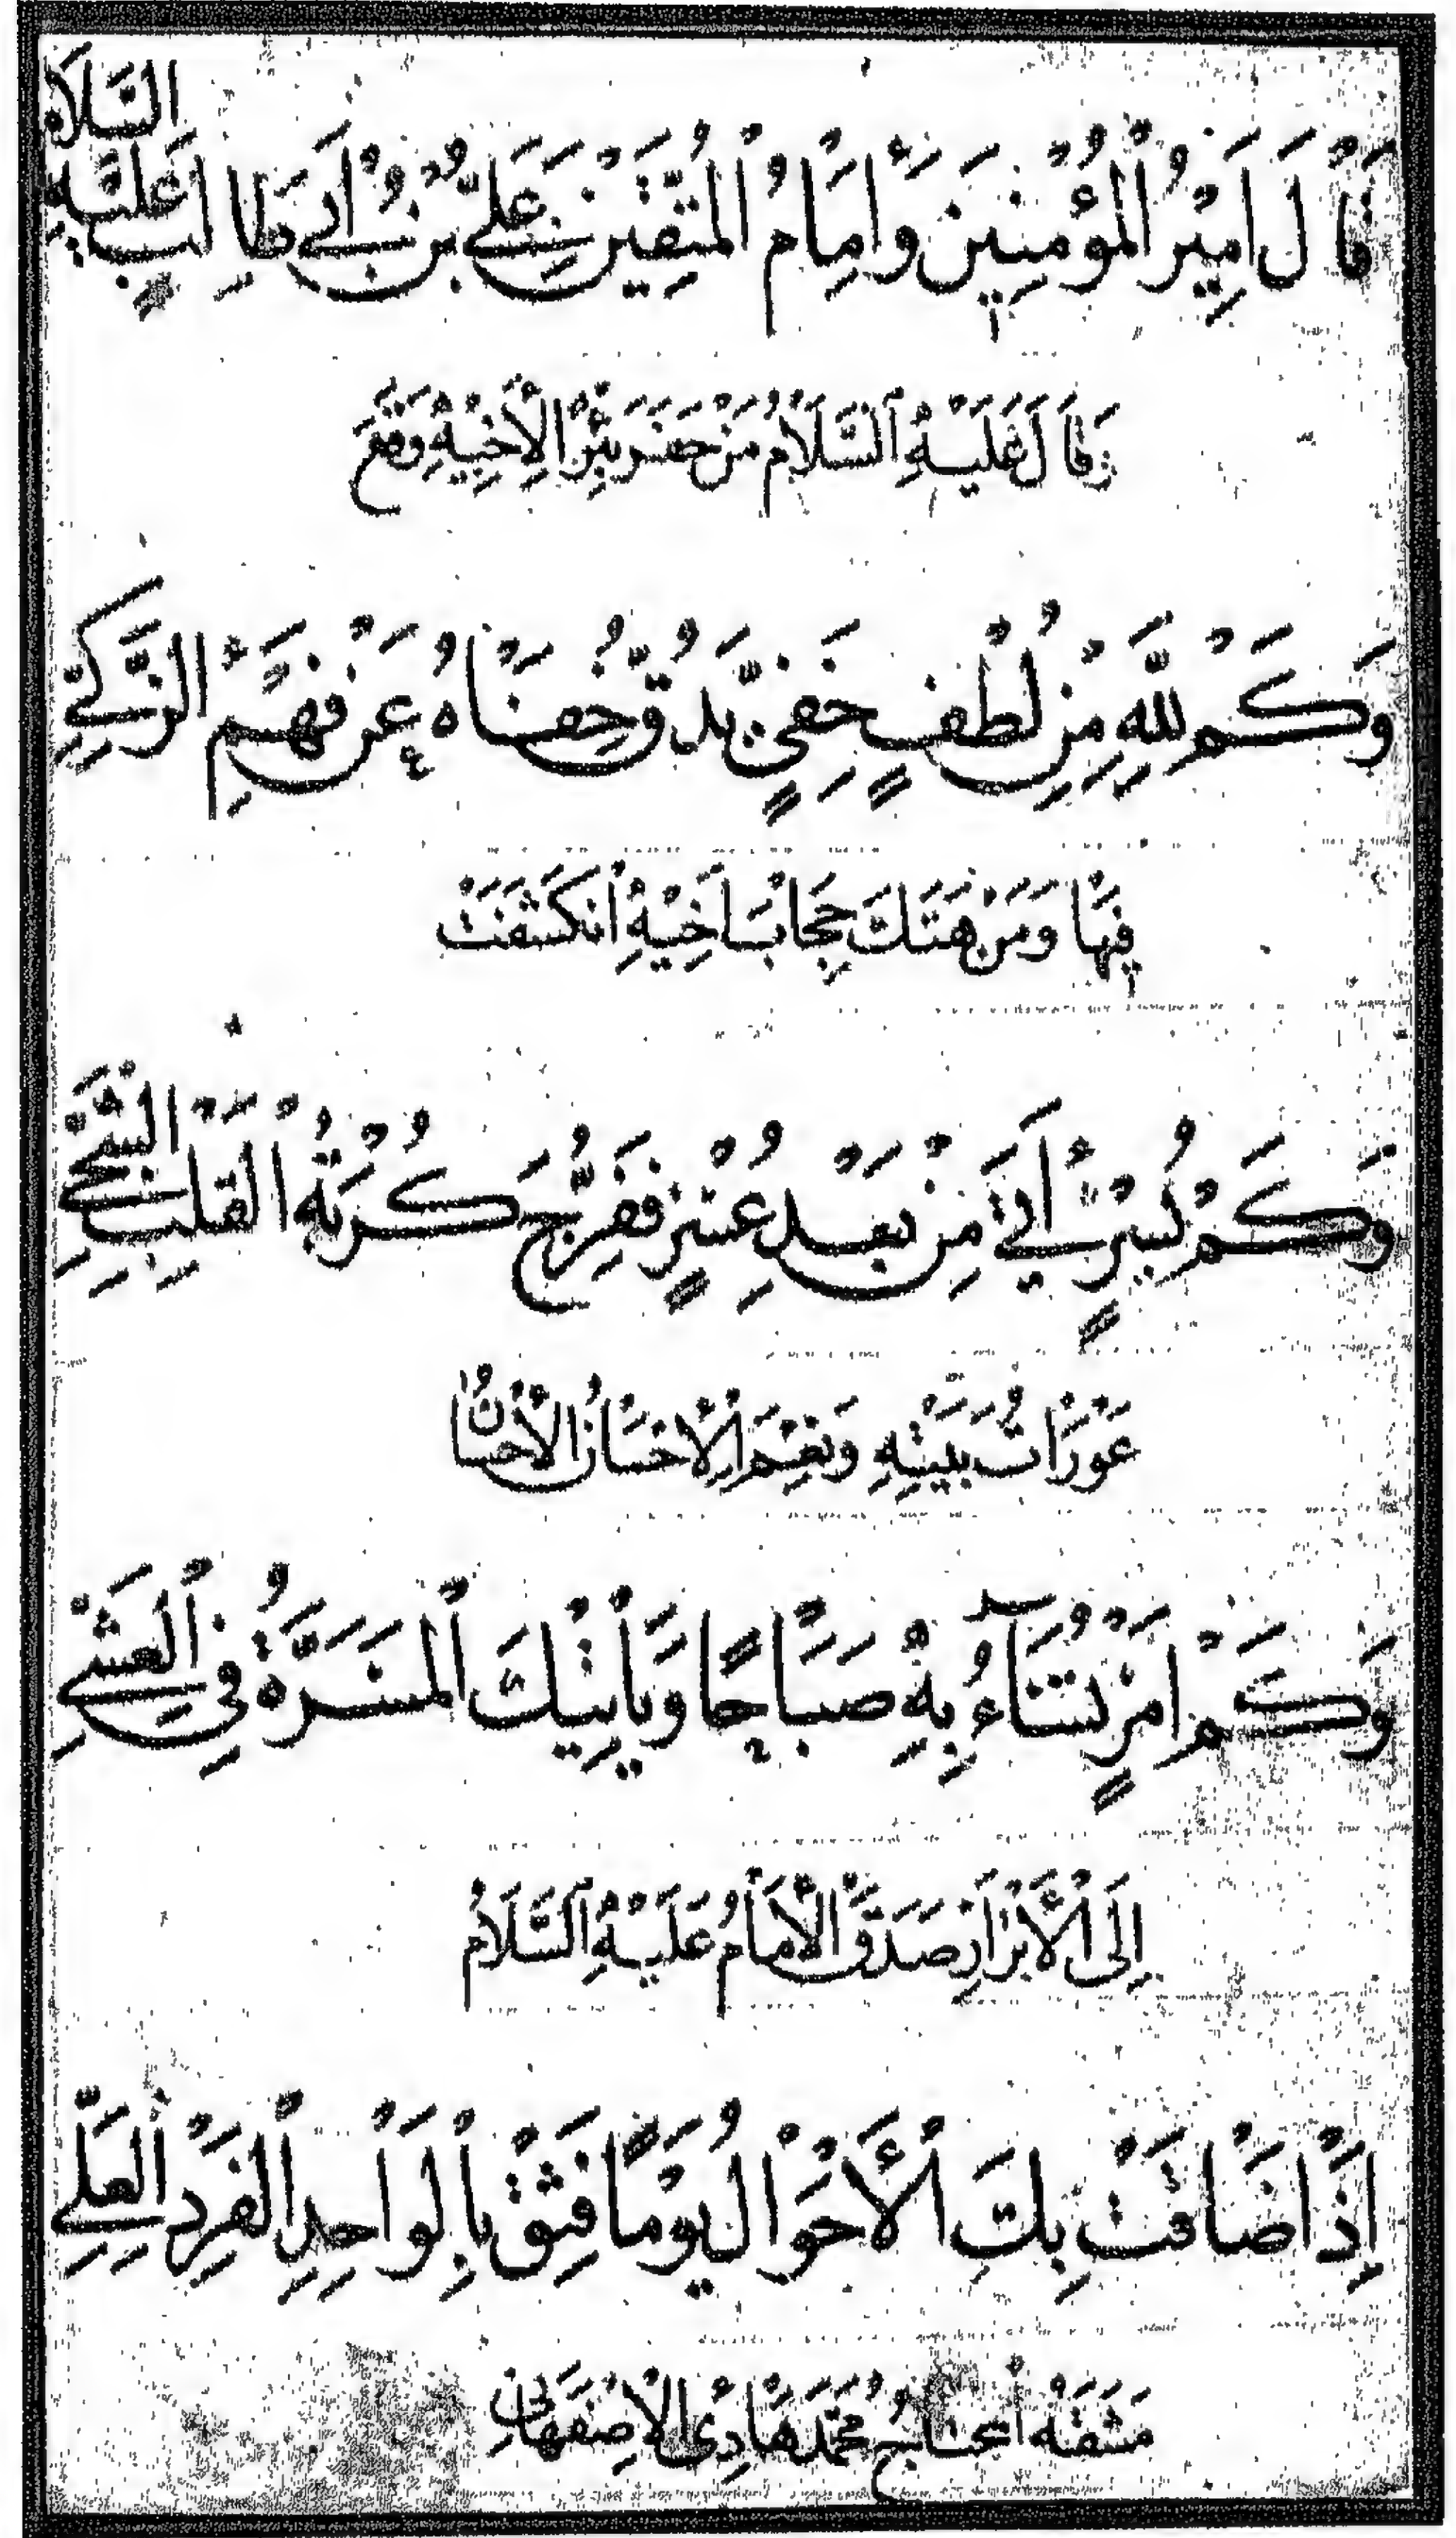 قَالَ اَمِيْرُ الْمُؤْمِنِيْنَ وَاِمَامُ الْمُتَّقِيْنَ عَلِيُّ بْنُ اَبِي طَالِبٍ عَلَيْهِ السَّلَامُ
وَقَالَ عَلَيْهِ السَّلَامُ مَنْ حَفَرَ بِئْرًا لِاَخِيْهِ وَقَعَ
وَكَمْ لِلّٰهِ مِنْ لُطْفٍ خَفِيٍّ يَدُقُّ خُفَاهُ عَنْ فَهْمِ الزَّكِيِّ
فِيْهَا وَمَنْ هَتَكَ حِجَابَ اَخِيْهِ انْكَشَفَتْ
وَكَمْ يُسْرٍ اَتٰى مِنْ بَعْدِ عُسْرٍ فَفَرَّجَ كُرْبَةَ الْقَلْبِ الشَّجِيِّ
عَوْرَاتُ بَيْتِهِ وَنِعْمَ الْاِحْسَانُ الْاِحْسَانُ
وَكَمْ اَمْرٍ تُسَاۤءُ بِهٖ صَبَاحًا وَيَأْتِيْكَ الْمَسَرَّةُ فِي الْعَشِيِّ
اِلَى الْاَبْرَارِ صَدَقَ الْاِمَامُ عَلَيْهِ السَّلَامُ
اِذَا ضَاقَتْ بِكَ الْاَحْوَالُ يَوْمًا فَثِقْ بِالْوَاحِدِ الْفَرْدِ الْعَلِيِّ
مَشَقَهُ الْمُحْتَاجُ مُحَمَّد هَادِى الْاِصْفَهَانِى